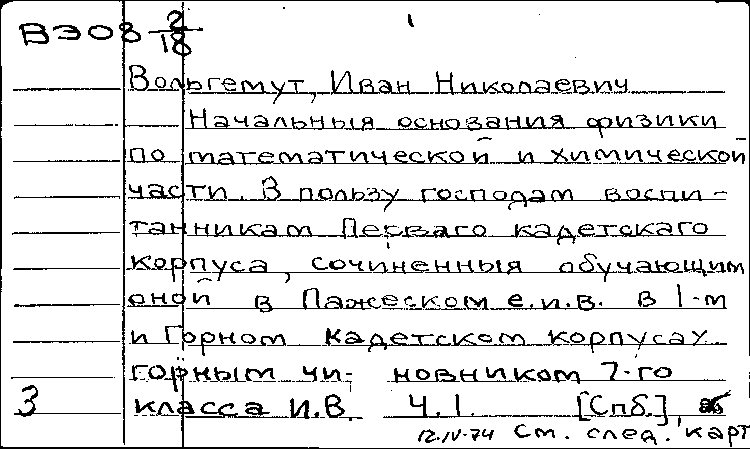 ВЭО 8 2/18 1
Вольгемут, Иван Николаевич
Начальныя основания физики
по математической и химической
части. В пользу господам воспи-
танникам Перваго кадетскаго
корпуса, сочиненныя обучающим
оной в Пажеском е.и.в. в 1-м
и Горном Кадетском корпусах
горным чи- новником 7-го
3 класса И.В. Ч.1. [Спб.],
12.IV-74 См. след. карт